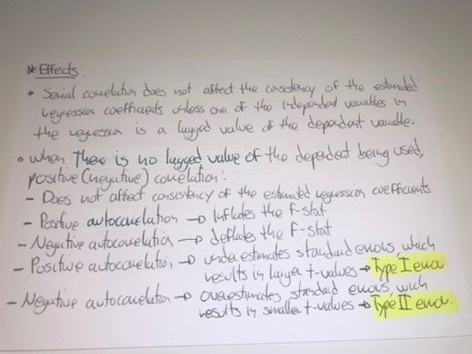 * Effects:
• Serial correlation does not affect the consistency of the estimated
regression coefficients unless one of the independent variables in
the regression is a lagged value of the dependent variable.
• When there is no lagged value of the dependent being used,
positive (negative) correlation:
- Does not affect consistency of the estimated regression coefficients
- Positive autocorrelation → inflates the F-stat
- Negative autocorrelation → deflates the F-stat
- Positive autocorrelation → underestimates standard errors, which
results in larger t-values → Type I error
- Negative autocorrelation → overestimates standard errors, wich
results in smaller t-values → Type II error.